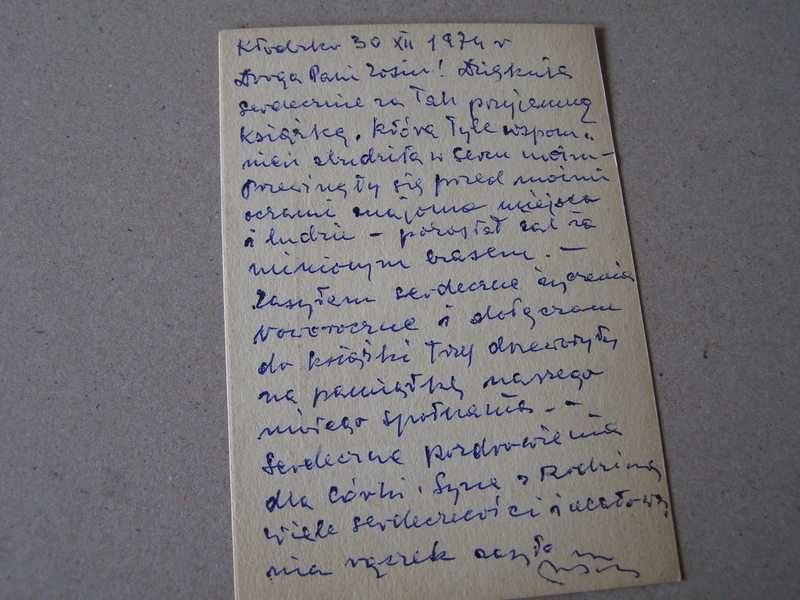 Kłodzko 30 XII 1974 r
Droga Pani Zosiu! Dziękuję
serdecznie za tak przyjemną
książkę, która tyle wspom„
nień zbudziła w sercu moim–
Przewinęły się przed moimi
oczami znajome miejsca
i ludzie – pozostał żal za
minionym czasem. –
Zasyłam serdeczne życzenia
Noworoczne i dołączam
do książki trzy drzeworyty
na pamiątkę naszego
miłego spotkania. –
Serdeczne pozdrowienia
dla Córki, Syna z Rodziną
wiele serdeczności i ucałowa„
nia rączek zasyła